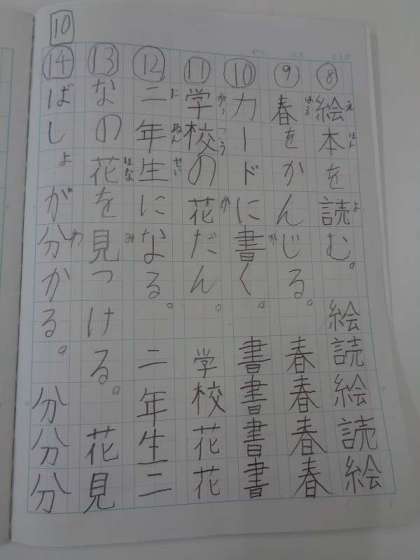 10
⑧絵本を読む。 絵読絵読絵
⑨春をかんじる。 春春春春
⑩カードに書く。 書書書書
⑪学校の花だん。 学校花花
⑫二年生になる。 二年生二
⑬なの花を見つける。 花見
⑭ばしょが分かる。 分分分